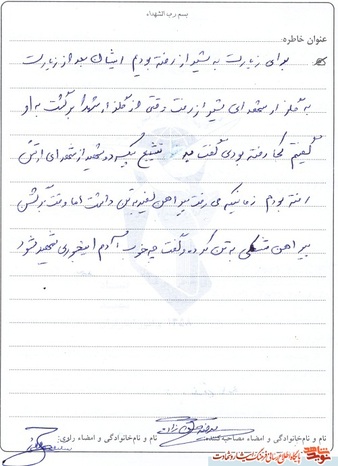 بسم رب الشهداء
عنوان خاطره:
برای زیارت به شیراز رفته بودیم ایشان بعد از زیارت
به گلزار شهدای شیراز رفت وقتی از گلزار شهدا برگشت به او
گفتیم کجا رفته بودی گفت به تشییع پیکر دو شهید از شهدای ارتش
رفته بودم زمانیکه می رفت پیراهن سفید به تن داشت اما وقت برگشتن
پیراهن مشکی به تن کرده و گفت چه خوب آدم اینجوری شهید شود
نام و نام خانوادگی و امضاء مصاحبه کننده:
نام و نام خانوادگی و امضاء راوی:
نوید شاهد
پایگاه اطلاع رسانی فرهنگ ایثار و شهادت